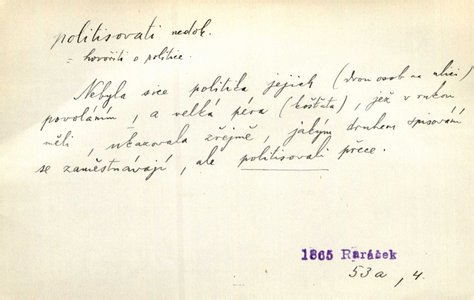 politisovati nedok.
= hovořiti o politice.
Nebyla sice politika jejich (dvou osob na ulici)
povoláním, a velká péra (košťata), jež v rukou
měli, ukazovala zřejmě, jakým druhem spisování
se zaměstnávají, ale politisovali přece.
1865 Raráček
53a, 4.